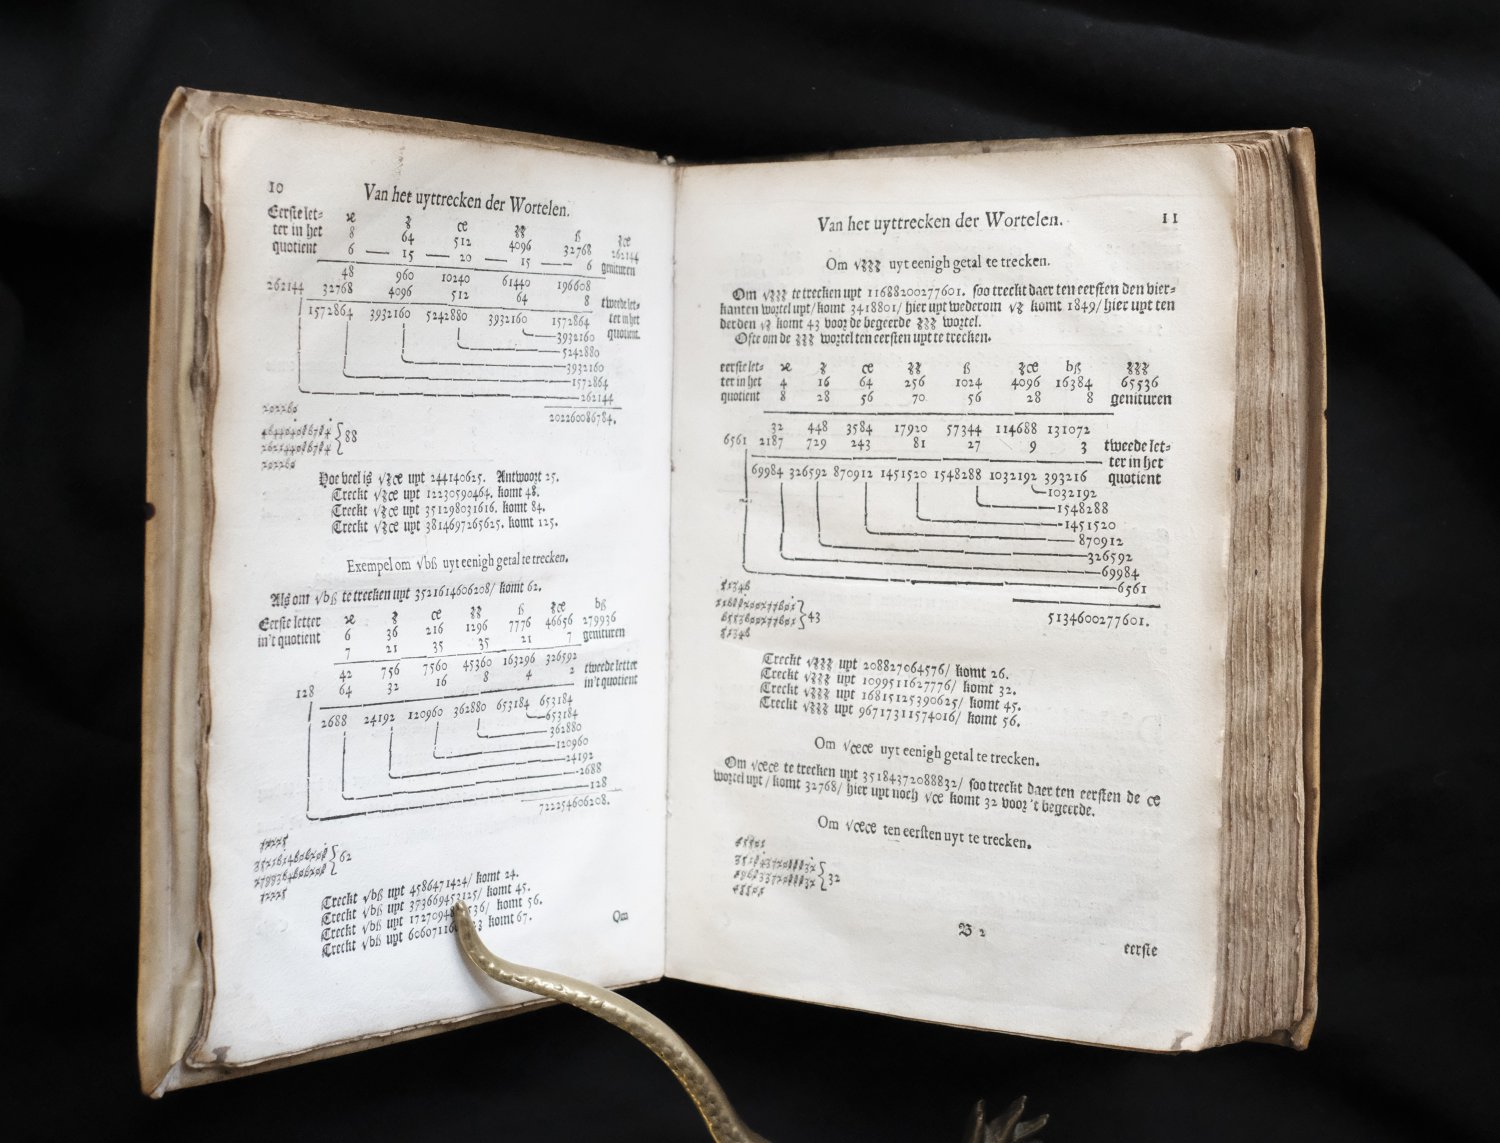 10
Van het uyttrecken der Wortelen.
Eerste let-
ter in het
quotient
8 64 512 4096 32768 262144
6 — 15 — 20 — 15 — 6 genituren
48 960 10240 61440 196608
262144 32768 4096 512 64 8 tweede let-
ter in het
quotient.
1572864 3932160 5242880 3932160 1572864
3932160
5242880
3932160
1572864
262144
202260086784.
88
Hoe veel is √ʒce uyt 244140625. Antwoort 25.
Treckt √ʒce uyt 12230590464. komt 48.
Treckt √ʒce uyt 351298031616. komt 84.
Treckt √ʒce uyt 3814697265625. komt 125.
Exempel om √bß uyt eenigh getal te trecken.
Als om √bß te trecken uyt 3521614606208/ komt 62.
Eerste letter
in't quotient
ß ʒce bß
6 36 216 1296 7776 46656 279936
7 21 35 35 21 7 genituren
42 756 7560 45360 163296 326592
128 64 32 16 8 4 2 tweede letter
in't quotient
2688 24192 120960 362880 653184 653184
653184
362880
120960
24192
2688
128
722254606208.
62
Treckt √bß uyt 4586471424/ komt 24.
Treckt √bß uyt 373669453125/ komt 45.
Treckt √bß uyt 172709 536/ komt 56.
Treckt √bß uyt 6060711 komt 67.
Om
Van het uyttrecken der Wortelen.
11
Om √ʒʒʒ uyt eenigh getal te trecken.
Om √ʒʒʒ te trecken uyt 11688200277601. soo treckt daer ten eersten den vier-
kanten wortel uyt/ komt 3418801/ hier uyt wederom √ʒ komt 1849/ hier uyt ten
derden √ʒ komt 43 voor de begeerde ʒʒʒ wortel.
Ofte om de ʒʒʒ wortel ten eersten uyt te trecken.
eerste let-
ter in het
quotient
ʒ ce ʒʒ ß ʒce bß ʒʒʒ
4 16 64 256 1024 4096 16384 65536
8 28 56 70 56 28 8 genituren
32 448 3584 17920 57344 114688 131072
6561 2187 729 243 81 27 9 3 tweede let-
ter in het
quotient
69984 326592 870912 1451520 1548288 1032192 393216
1032192
1548288
1451520
870912
326592
69984
6561
5134600277601.
43
Treckt √ʒʒʒ uyt 208827064576/ komt 26.
Treckt √ʒʒʒ uyt 1099511627776/ komt 32.
Treckt √ʒʒʒ uyt 16815125390625/ komt 45.
Treckt √ʒʒʒ uyt 96717311574016/ komt 56.
Om √cece uyt eenigh getal te trecken.
Om √cece te trecken uyt 35184372088832/ soo treckt daer ten eersten de ce
wortel uyt/ komt 32768/ hier uyt noch √ce komt 32 voor 't begeerde.
Om √cece ten eersten uyt te trecken.
32
B 2
eerste